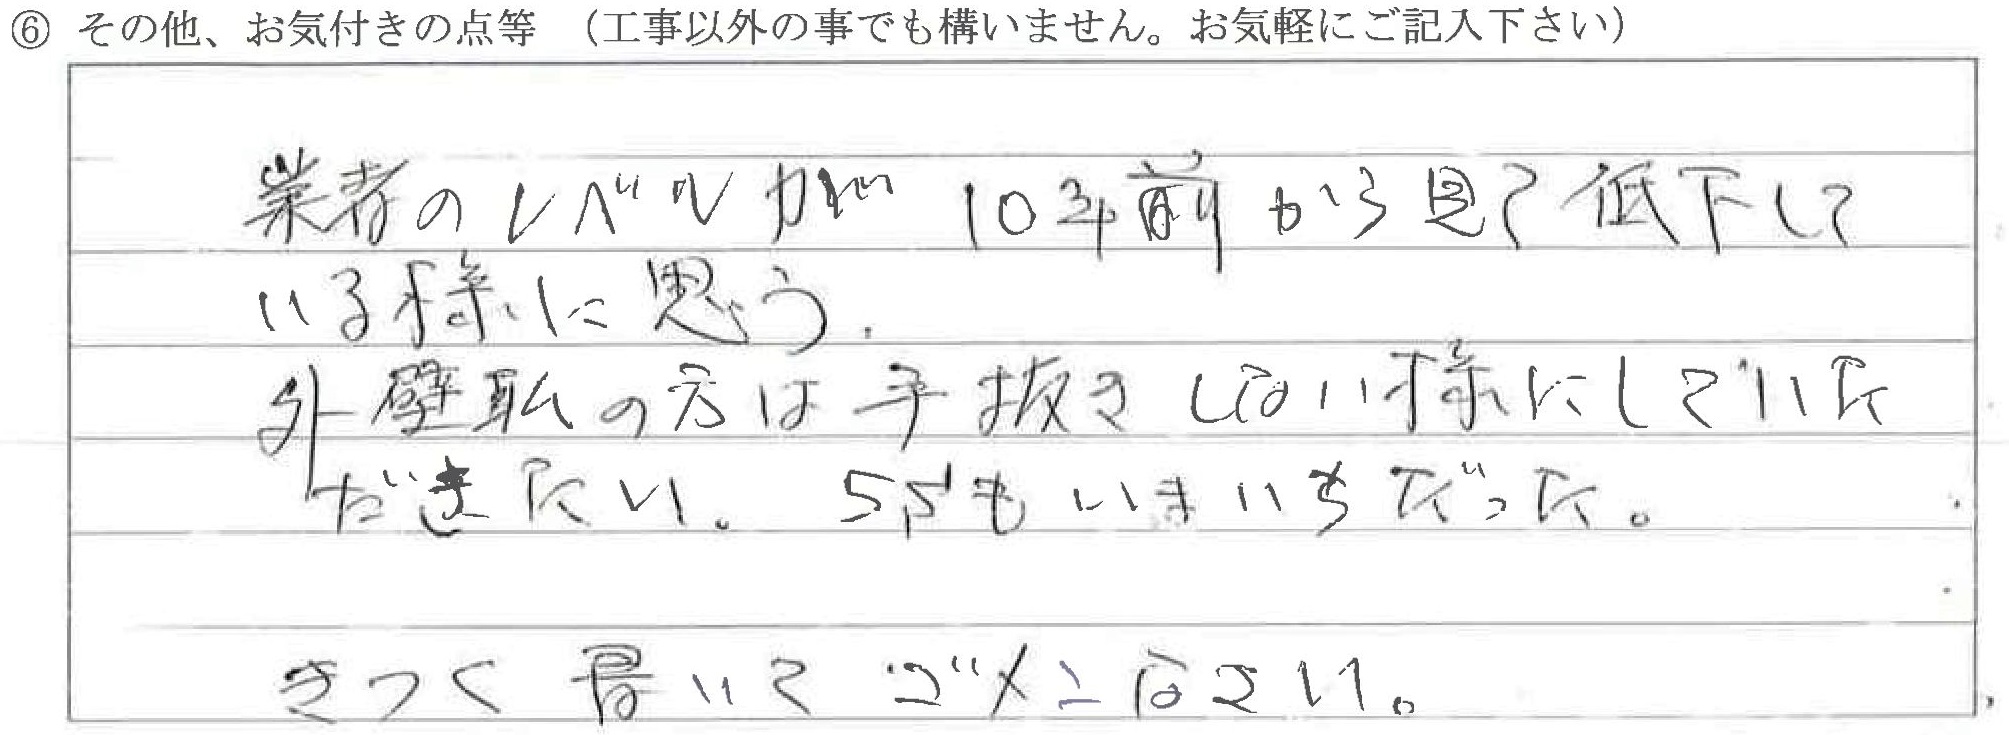 ⑥ その他、お気付きの点等 (工事以外の事でも構いません。お気軽にご記入下さい)
業者のレベルが10年前から見て低下して
いる様に思う.
外壁私の方は手抜きしない様にしていた
だきたい。5Sもいまいちだった。
きつく書いてゴメンなさい。